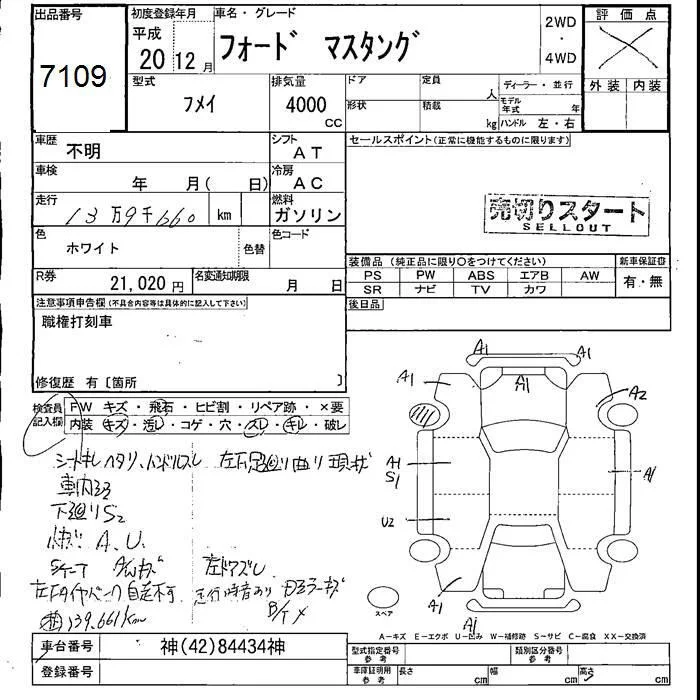 出品番号
7109
初度登録年月
平成
20 12月
車名・グレード
フォード マスタング
2WD
・
4WD
評価点
外装 内装
型式
フメイ
排気量
4000
CC
ドア
定員
人
形状
積載
kg
ディーラー・並行
モデル年式 年
ハンドル 左・右
車歴
不明
シフト
AT
セールスポイント(正常に機能するものに限ります)
車検
年 月( 日)
冷房
AC
走行
13万9千660 km
燃料
ガソリン
売切りスタート
SELLOUT
色
ホワイト
色替
色コード
装備品 (純正品に限り○をつけてください)
新車保証書
PS PW ABS エアB AW
SR ナビ TV カワ
有・無
R券
21,020円
名変通知期限
月 日
後日品
注意事項申告欄(不具合内容等は具体的に記入して下さい)
職権打刻車
修復歴 有〔箇所 〕
検査員記入欄
FW キズ・飛石・ヒビ割・リペア跡・×要
内装 キズ・汚レ・コゲ・穴・スレ・キレ・破レ
シートキレ ヘタリ、ハンドルスレ
下廻りS2
A.U.
139.661km
A1
A1
A1
A1
A2
A1
S1
A1
U2
A1
A1
スペア
A−キズ E−エクボ U−凹み W−補修跡 S−サビ C−腐食 XX−交換済
車台番号
神(42)84434神
型式指定番号
参考
類別区分番号
参考
登録番号
車庫証明用
参考
長さ cm
幅 cm
高さ cm